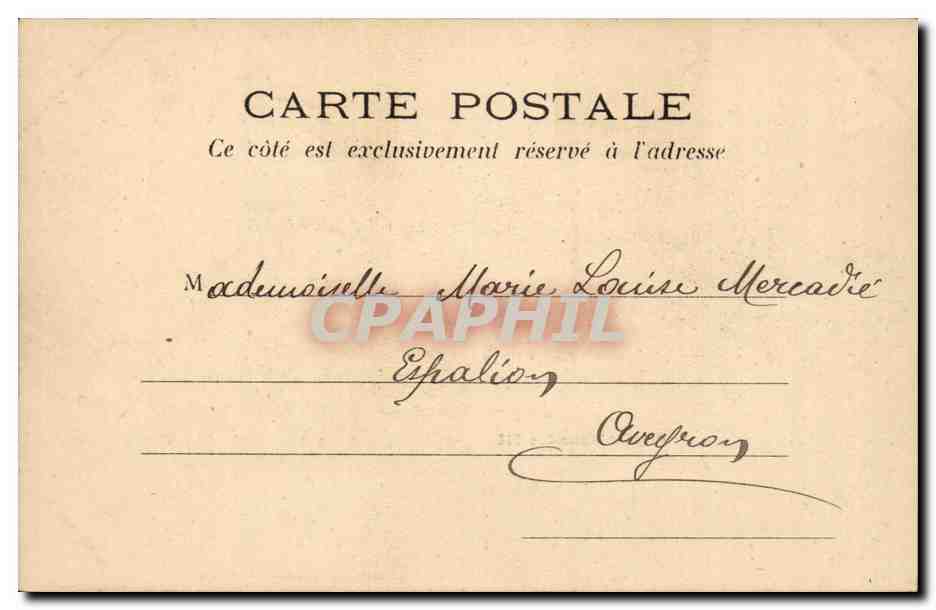 CARTE POSTALE
Ce côté est exclusivement réservé à l'adresse
Mademoiselle Marie Louise Mercadié
CPAPHIL
Espalion
Aveyron